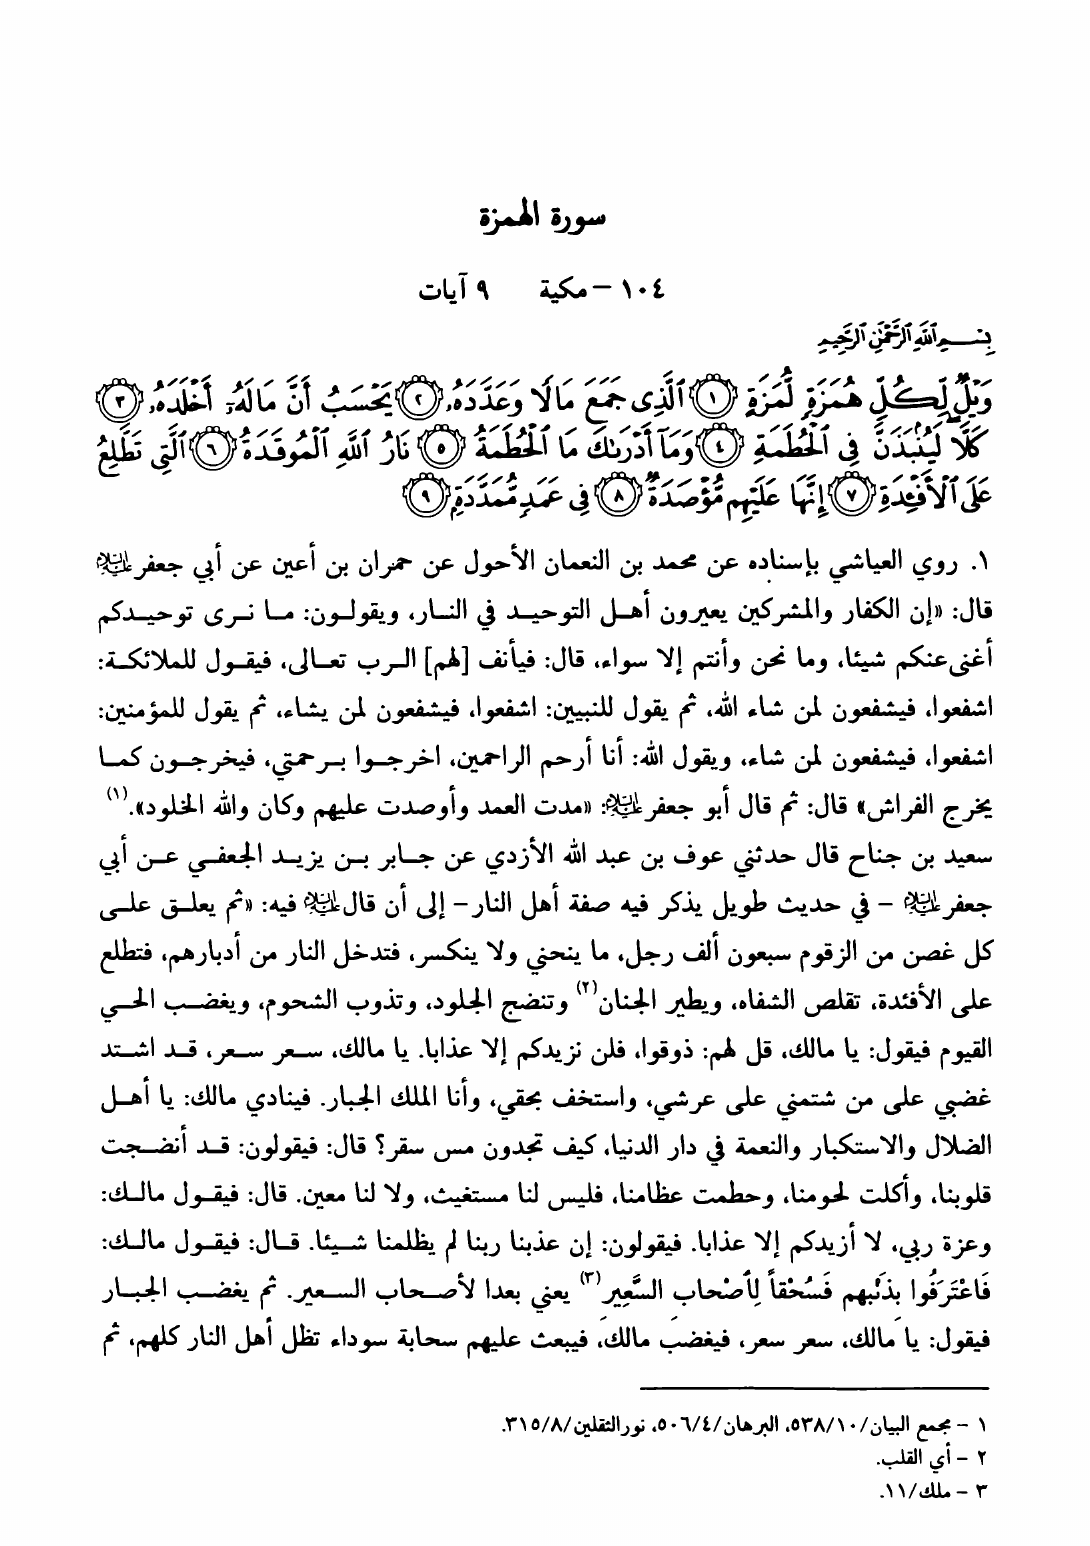 سورة الهمزة
١٠٤ – مكية ٩ آيات
بِسْمِ ٱللَّهِ ٱلرَّحْمَٰنِ ٱلرَّحِيمِ
وَيْلٌ لِّكُلِّ هُمَزَةٍ لُّمَزَةٍ ١ ٱلَّذِى جَمَعَ مَالًا وَعَدَّدَهُۥ ٢ يَحْسَبُ أَنَّ مَالَهُۥٓ أَخْلَدَهُۥ ٣
كَلَّا لَيُنۢبَذَنَّ فِى ٱلْحُطَمَةِ ٤ وَمَآ أَدْرَىٰكَ مَا ٱلْحُطَمَةُ ٥ نَارُ ٱللَّهِ ٱلْمُوقَدَةُ ٦ ٱلَّتِى تَطَّلِعُ
عَلَى ٱلْأَفْـِٔدَةِ ٧ إِنَّهَا عَلَيْهِم مُّؤْصَدَةٌ ٨ فِى عَمَدٍ مُّمَدَّدَةٍ ٩
١. روي العياشي بإسناده عن محمد بن النعمان الأحول عن حمران بن أعين عن أبي جعفر عليه السلام
قال: «إن الكفار والمشركين يعيرون أهل التوحيد في النار، ويقولون: ما نرى توحيدكم
أغنى عنكم شيئا، وما نحن وأنتم إلا سواء، قال: فيأنف [لهم] الرب تعالى، فيقول للملائكة:
اشفعوا، فيشفعون لمن شاء الله، ثم يقول للنبيين: اشفعوا، فيشفعون لمن يشاء، ثم يقول للمؤمنين:
اشفعوا، فيشفعون لمن شاء، ويقول الله: أنا أرحم الراحمين، اخرجوا برحمتي، فيخرجون كما
يخرج الفراش» قال: ثم قال أبو جعفر عليه السلام: «مدت العمد وأوصدت عليهم وكان والله الخلود».(١)
سعيد بن جناح قال حدثني عوف بن عبد الله الأزدي عن جابر بن يزيد الجعفي عن أبي
جعفر عليه السلام – في حديث طويل يذكر فيه صفة أهل النار– إلى أن قال عليه السلام فيه: «ثم يعلق على
كل غصن من الزقوم سبعون ألف رجل، ما ينحني ولا ينكسر، فتدخل النار من أدبارهم، فتطلع
على الأفئدة، تقلص الشفاه، ويطير الجنان(٢) وتنضج الجلود، وتذوب الشحوم، ويغضب الحي
القيوم فيقول: يا مالك، قل لهم: ذوقوا، فلن نزيدكم إلا عذابا. يا مالك، سعر سعر، قد اشتد
غضبي على من شتمني على عرشي، واستخف بحقي، وأنا الملك الجبار. فينادي مالك: يا أهل
الضلال والاستكبار والنعمة في دار الدنيا، كيف تجدون مس سقر؟ قال: فيقولون: قد أنضجت
قلوبنا، وأكلت لحومنا، وحطمت عظامنا، فليس لنا مستغيث، ولا لنا معين. قال: فيقول مالك:
وعزة ربي، لا أزيدكم إلا عذابا. فيقولون: إن عذبنا ربنا لم يظلمنا شيئا. قال: فيقول مالك:
فَاعْتَرَفُوا بِذَنْبِهِم فَسُحْقاً لِأَصْحابِ السَّعِير(٣) يعني بعدا لأصحاب السعير. ثم يغضب الجبار
فيقول: يا مالك، سعر سعر، فيغضب مالك، فيبعث عليهم سحابة سوداء تظل أهل النار كلهم، ثم
١ – مجمع البيان/١٠/٥٣٨، البرهان/٤/٥٠٦، نورالثقلين/٨/٣١٥.
٢ – أي القلب.
٣ – ملك/١١.